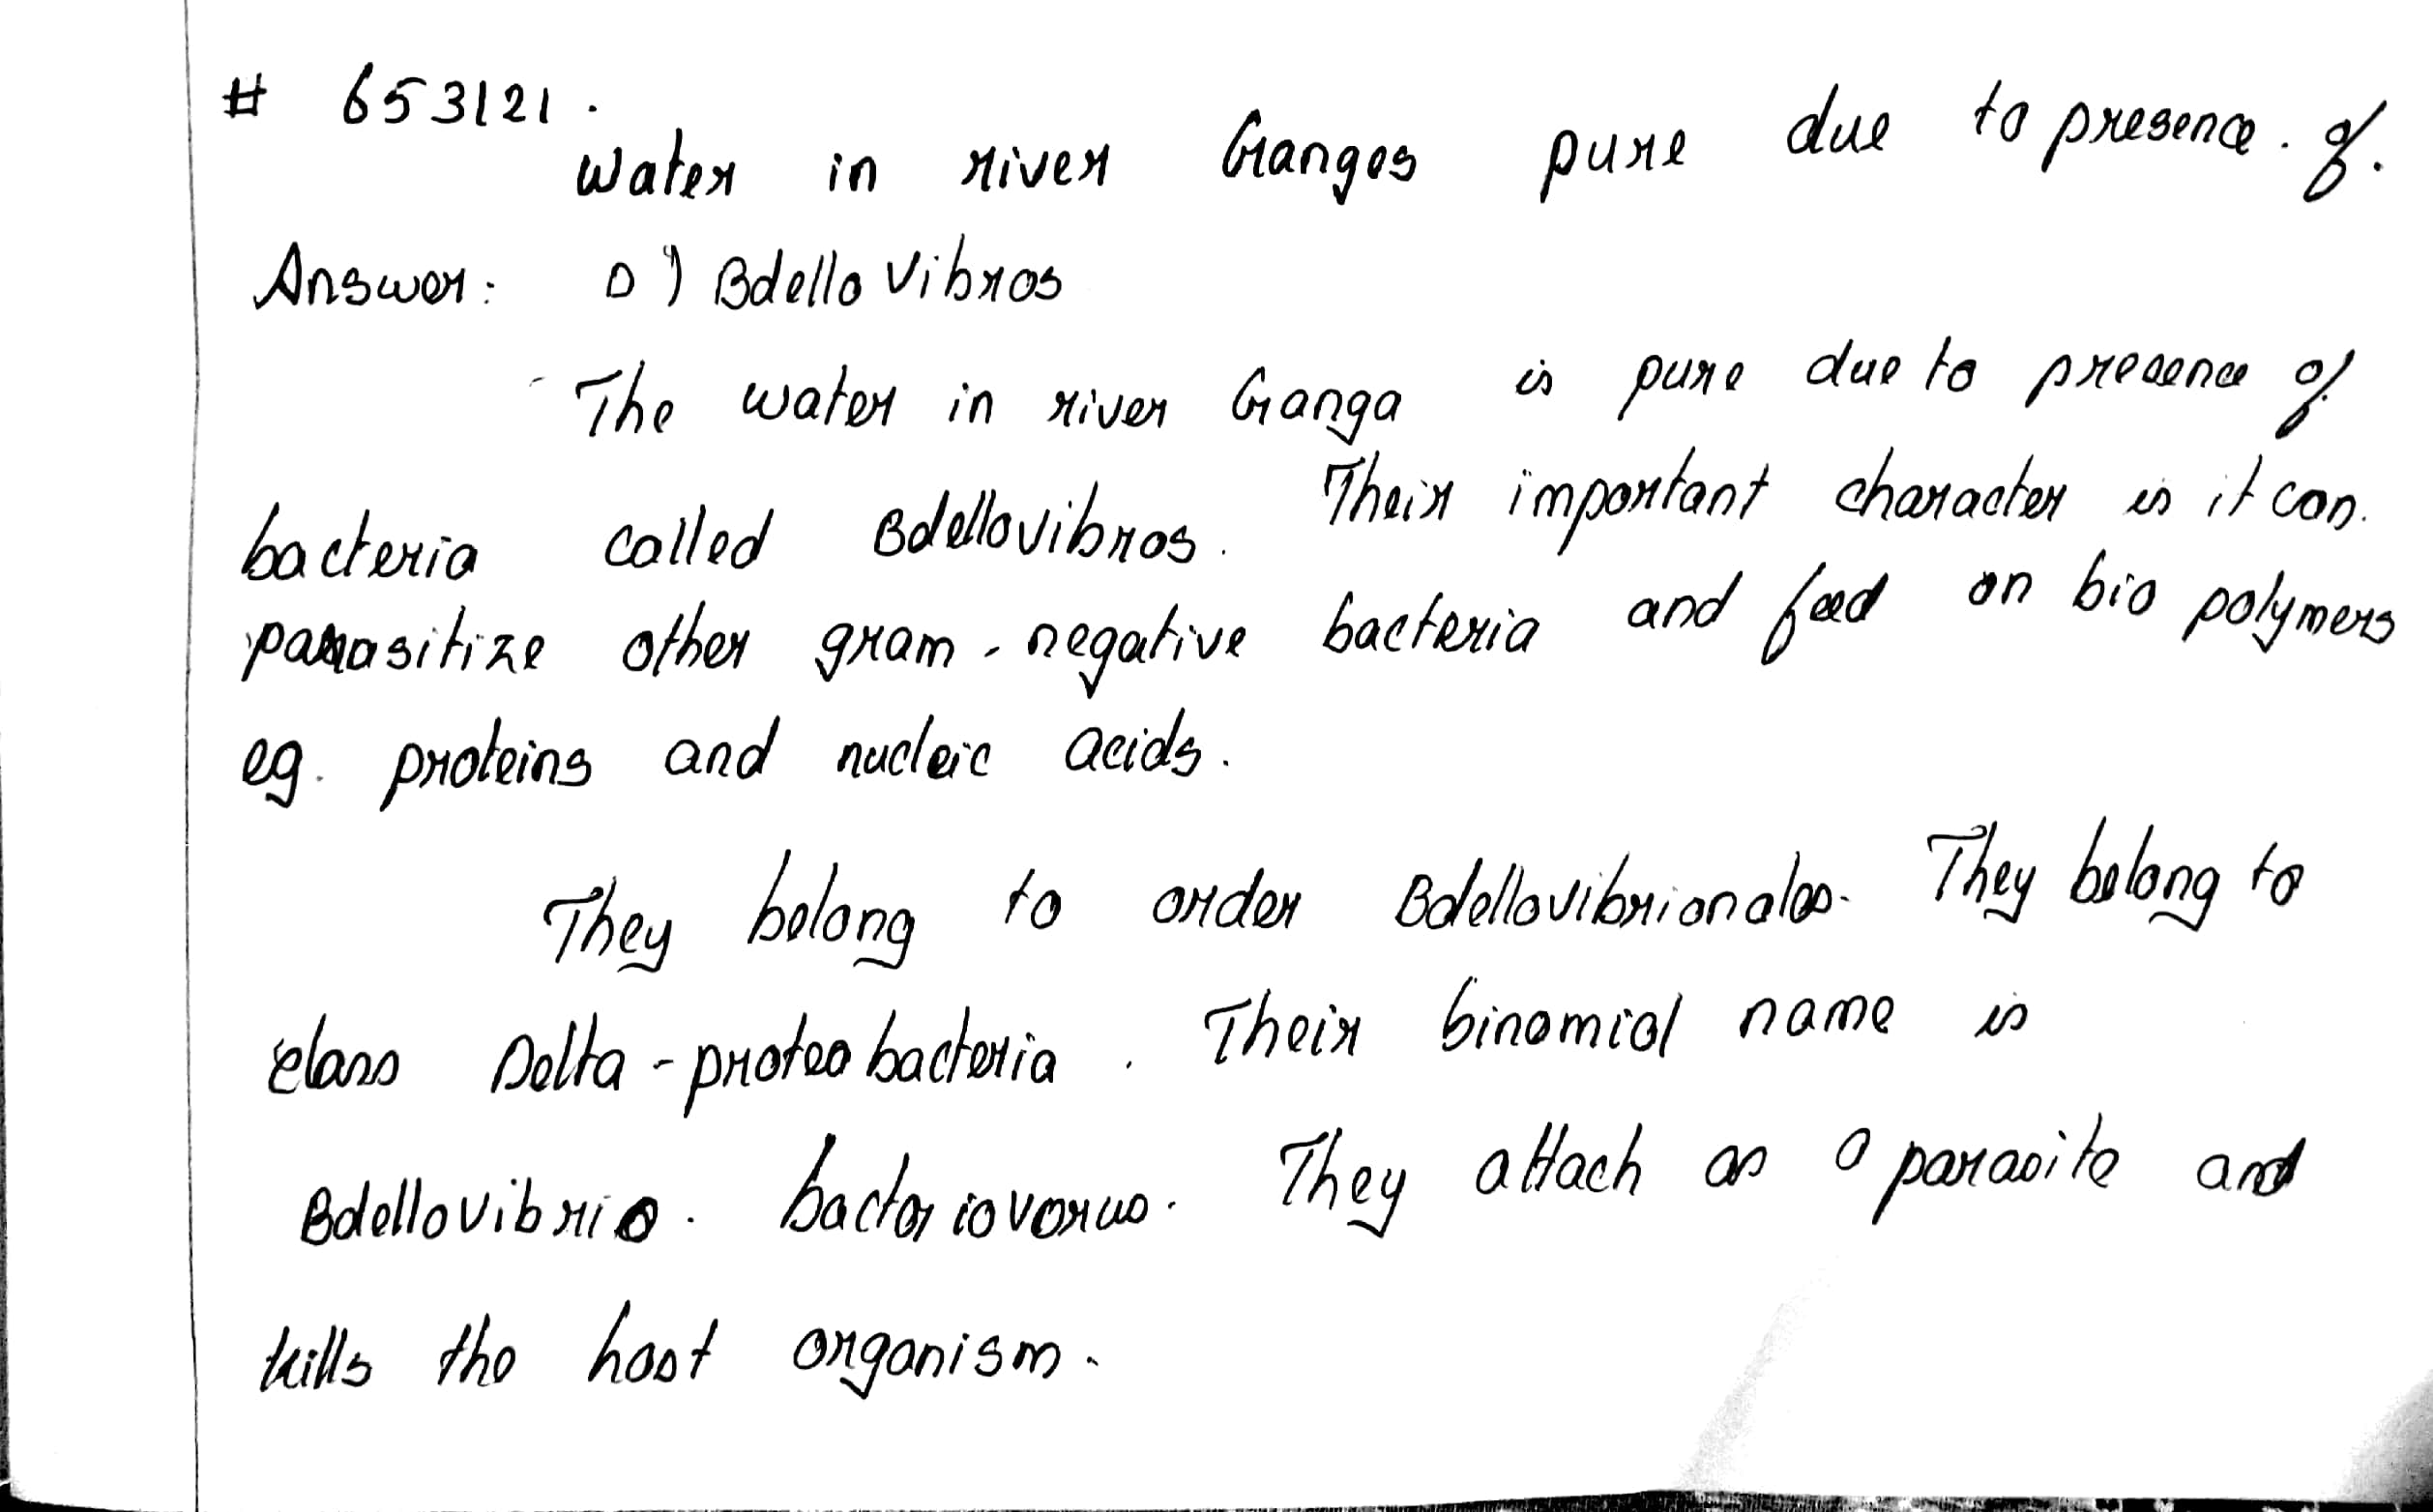 # 653121.
Water in river Ganges pure due to presence. of.
Answer: D) Bdello Vibros
The water in river Ganga is pure due to presence of
bacteria called Bdellovibros. Their important character is it can.
parasitize other gram-negative bacteria and feed on bio polymers
eg. proteins and nucleic acids.
They belong to order Bdellovibrionales. They belong to
class Delta-proteobacteria. Their binomial name is
Bdellovibrio. bacteriovorus. They attach as a parasite and
kills the host organism.